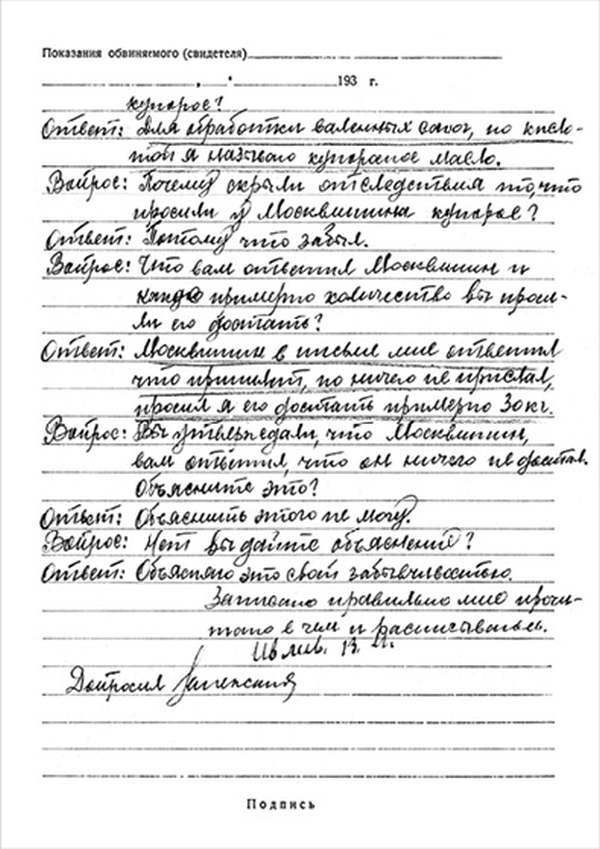 Показания обвиняемого (свидетеля)
193 г.
купорос?
Ответ: Для обработки валенных сапог, но кисло-
той я называю купоросное масло.
Вопрос: Почему скрыли от следствия то, что
просили у Москвитина купорос?
Ответ: Потому что забыл.
Вопрос: Что вам ответил Москвитин и
какое примерно количество вы проси-
ли его достать?
Ответ: Москвитин в письме мне ответил
что пришлет, но ничего не прислал,
просил я его достать примерно 30 кг.
Вопрос: Вы утверждали, что Москвитин,
вам ответил, что он ничего не достал.
Объясните это?
Ответ: Объяснить этого не могу.
Вопрос: Нет вы дайте объяснение?
Ответ: Объясняю это своей забывчивостью.
Записано правильно мне прочи-
тано в чем и расписываюсь.
Допросил
Подпись